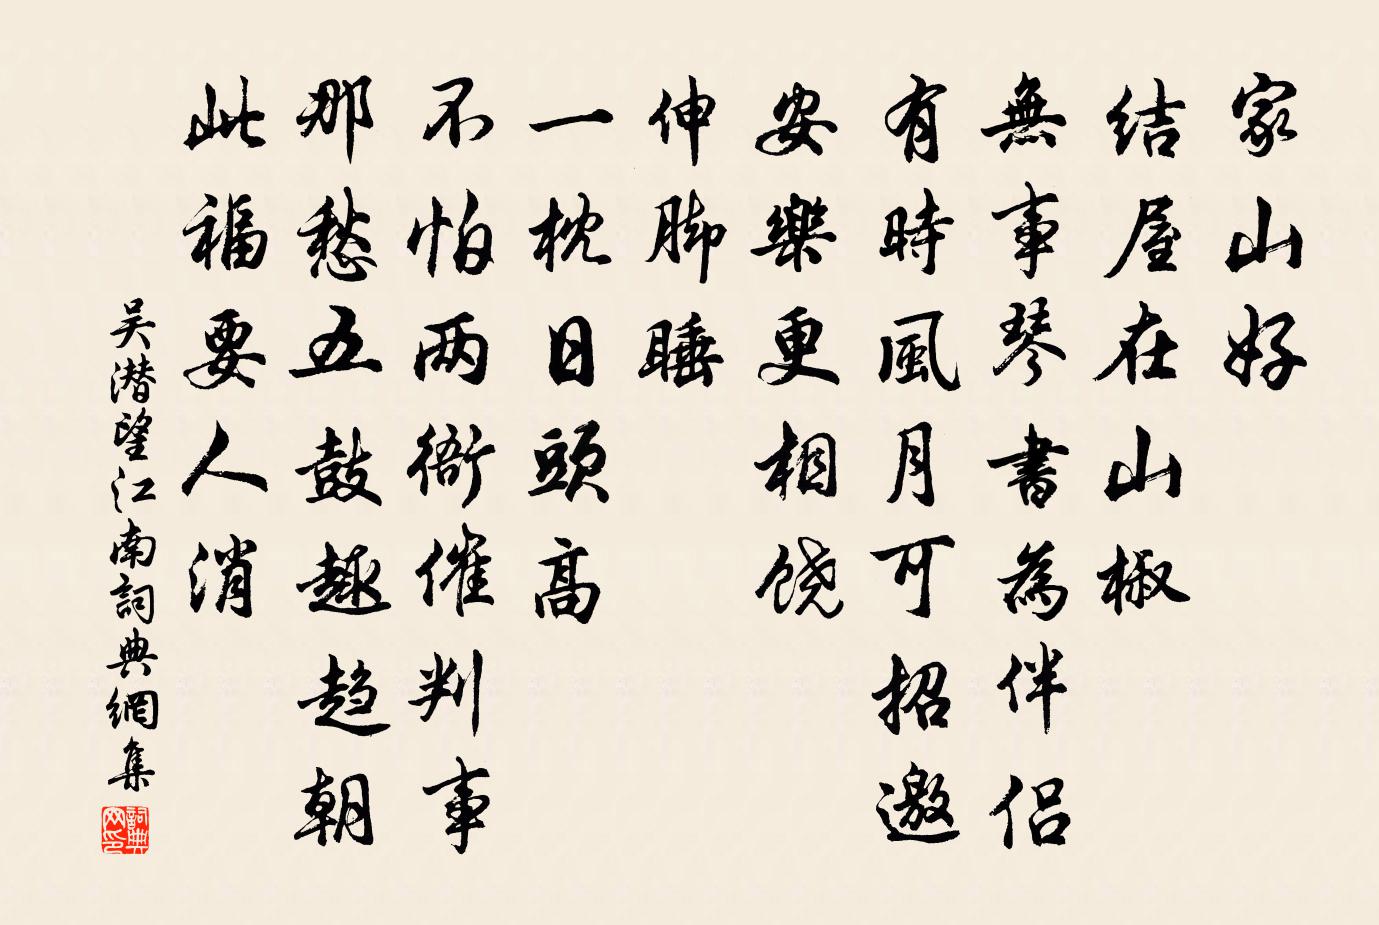 家山好
结屋在山椒
無事琴書為伴侣
有時風月可招邀
安樂更相饶
伸脚睡
一枕日頭高
不怕两衙催判事
那愁五鼓趣趋朝
此福要人消
吴潜望江南詞典網集
詞典网印